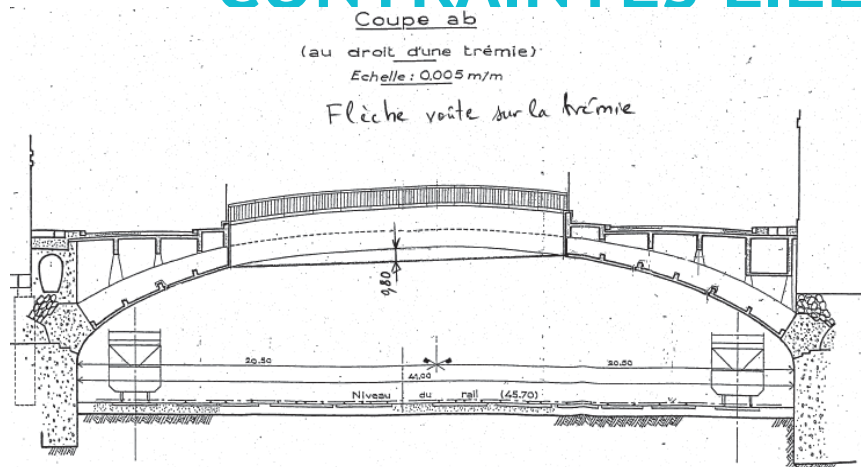 Coupe ab
(au droit d'une trémie)
Echelle : 0,005 m/m
Flèche voûte sur la trémie
0,80
20.50
20.50
41,00
Niveau du rail (45.70)